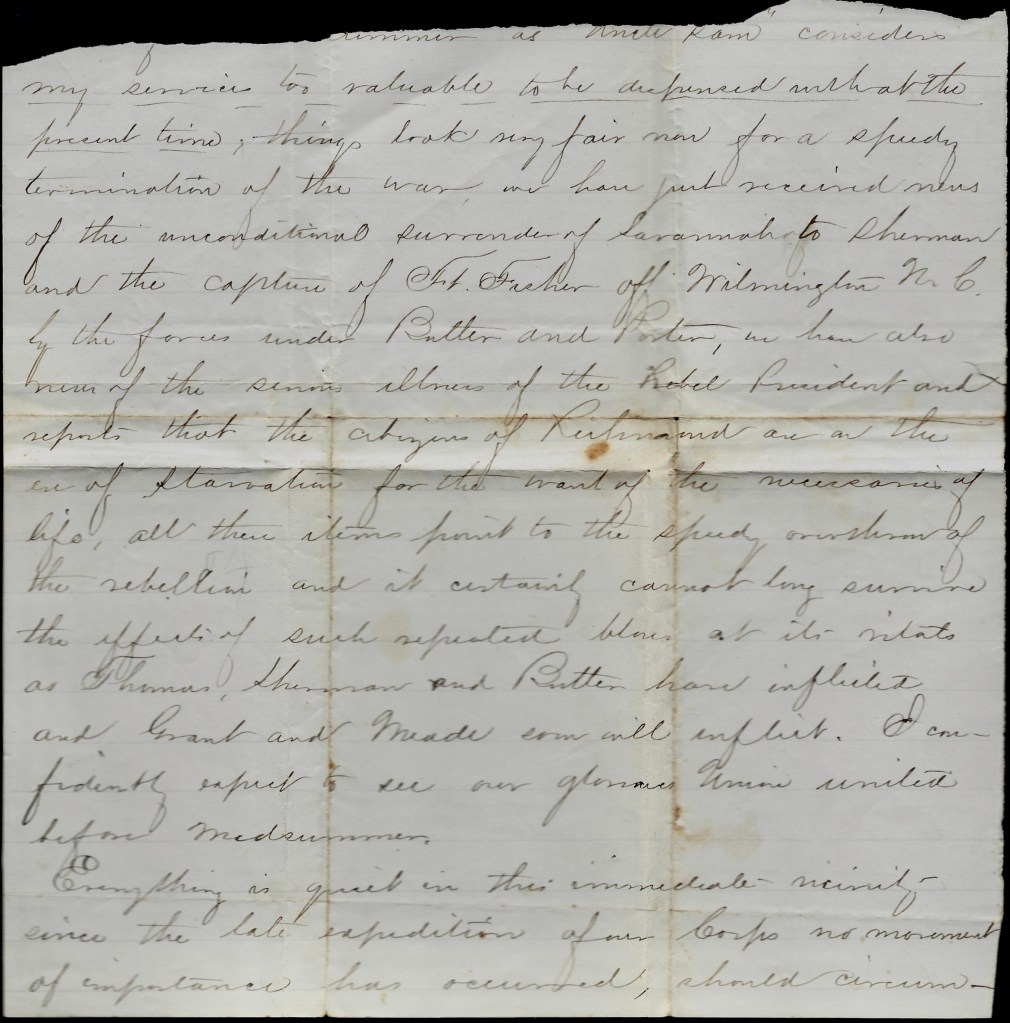 summer as Uncle Sam" considers
my services too valuable to be dispensed with at the
present time, things look very fair now for a speedy
termination of the war, we have just received news
of the unconditional surrender of Savannah to Sherman
and the capture of Ft. Fisher off Wilmington N. C.
by the forces under Butler and Porter, we have also
news of the serious illness of the Rebel President and
reports that the citizens of Richmond are on the
eve of starvation for the want of the necessaries of
life, all these items point to the speedy overthrow of
the rebellion and it certainly cannot long survive
the effects of such repeated blows at its vitals
as Thomas, Sherman and Butler have inflicted
and Grant and Meade soon will inflict. I con-
fidently expect to see our glorious Union united
before Midsummer.
Everything is quiet in this immediate vicinity
since the late expedition of our Corps no movement
of importance has occurred, should circum-